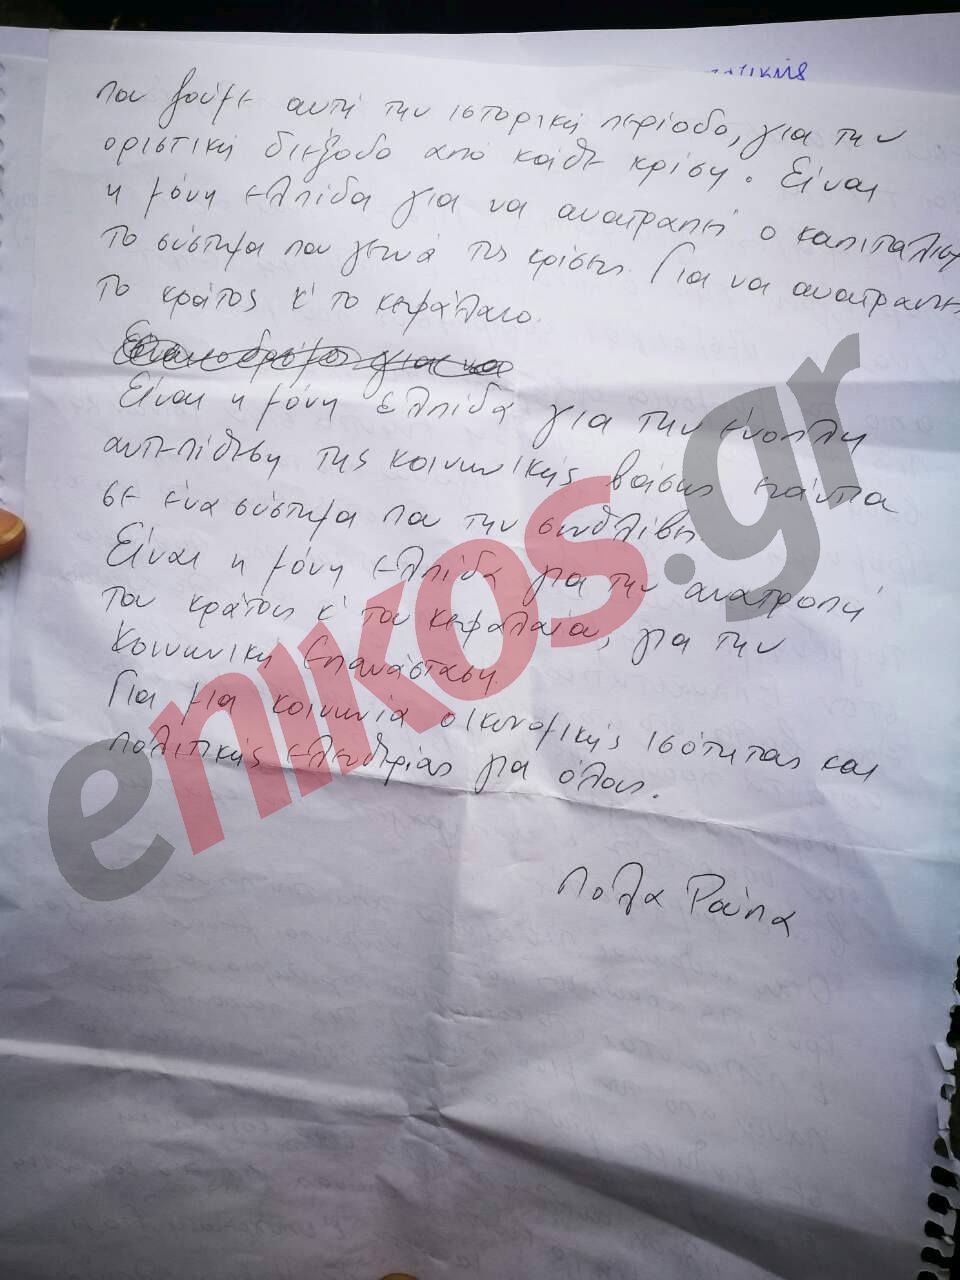 που ζούμε αυτή την ιστορική περίοδο, για την
οριστική διέξοδο από κάθε κρίση. Είναι
η μόνη ελπίδα για να ανατραπεί ο καπιταλισμ
το σύστημα που γεννά τις κρίσεις. Για να ανατραπεί
το κράτος κ' το κεφάλαιο.
Είναι η μόνη ελπίδα για την ένοπλη
αντεπίθεση της κοινωνικής βάσης ενάντια
σε ένα σύστημα που την συνθλίβει.
Είναι η μόνη ελπίδα για την ανατροπή
του κράτους κ' του κεφαλαίου, για την
Κοινωνική Επανάσταση.
Για μια κοινωνία οικονομικής ισότητας και
πολιτικής ελευθερίας για όλους.
Πόλα Ρούπα
enikos.gr